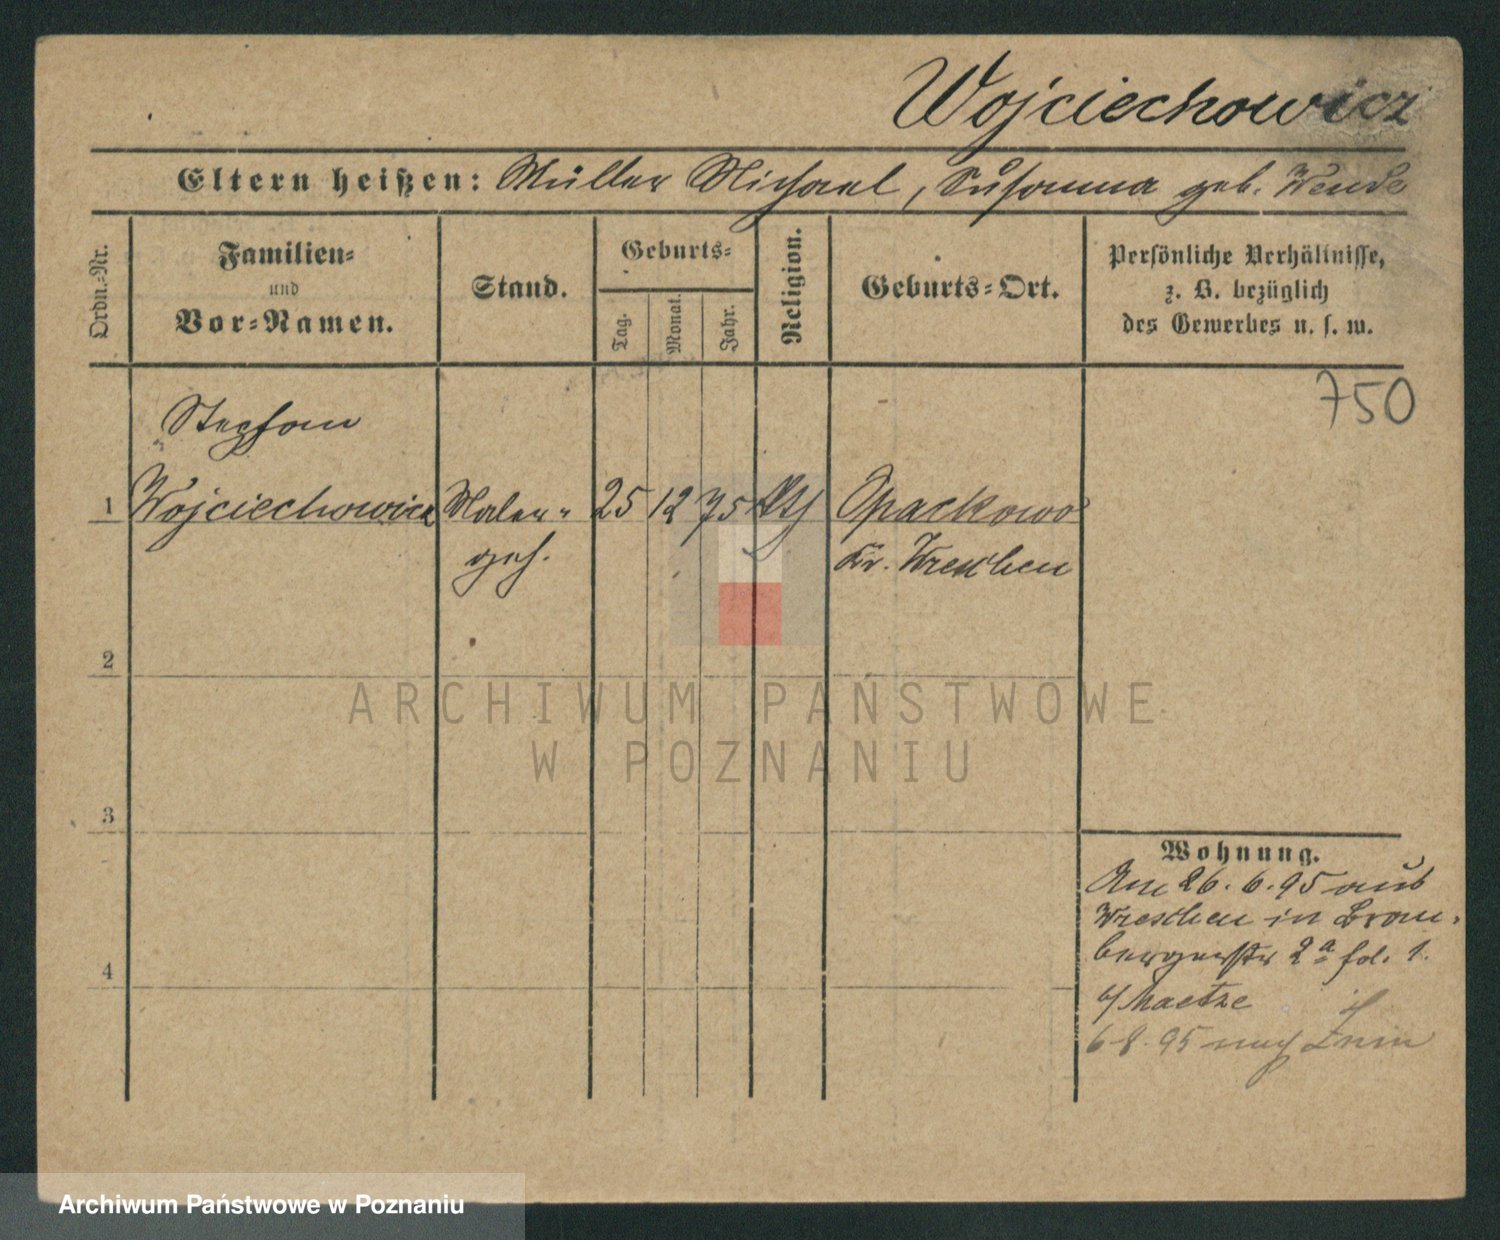 Wojciechowicz
Eltern heißen: Müller Michael, Susanna geb. Wende
Ordn.-Nr.
Familien-
und
Vor-Namen.
Stand.
Geburts-
Tag.
Monat.
Jahr.
Religion.
Geburts-Ort.
Persönliche Verhältnisse,
z. B. bezüglich
des Gewerbes u. s. w.
750
Stephan
1 Wojciechowicz Maler- 25 12 75 kth Opackowo
geh. Kr. Wreschen
2
3
4
Wohnung.
Am 26.6.95 aus
Wreschen in Brom-
bergerstr 2a fol. 1.
b/ Maetze
6.8.95 nach Znin
ARCHIWUM PAŃSTWOWE
W POZNANIU
Archiwum Państwowe w Poznaniu